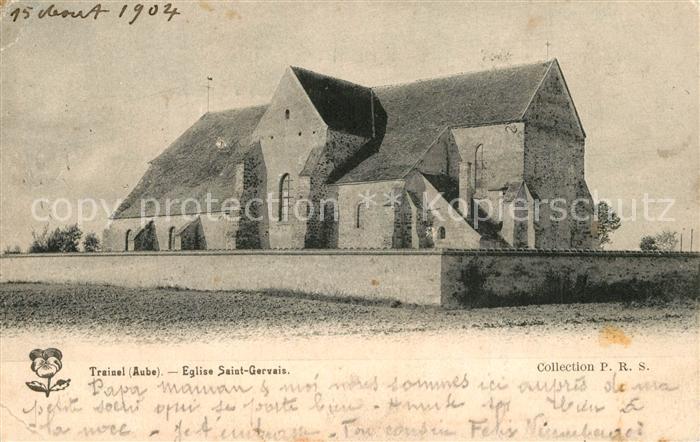 15 Aout 1904
copyright * * Kopierschutz
Trainel (Aube). — Eglise Saint-Gervais.
Collection P. R. S.
Papa maman & moi nous sommes ici auprès de ma
petite soeur qui se porte bien - bien à
la noce - Je t'embrasse - Ton cousin Félix